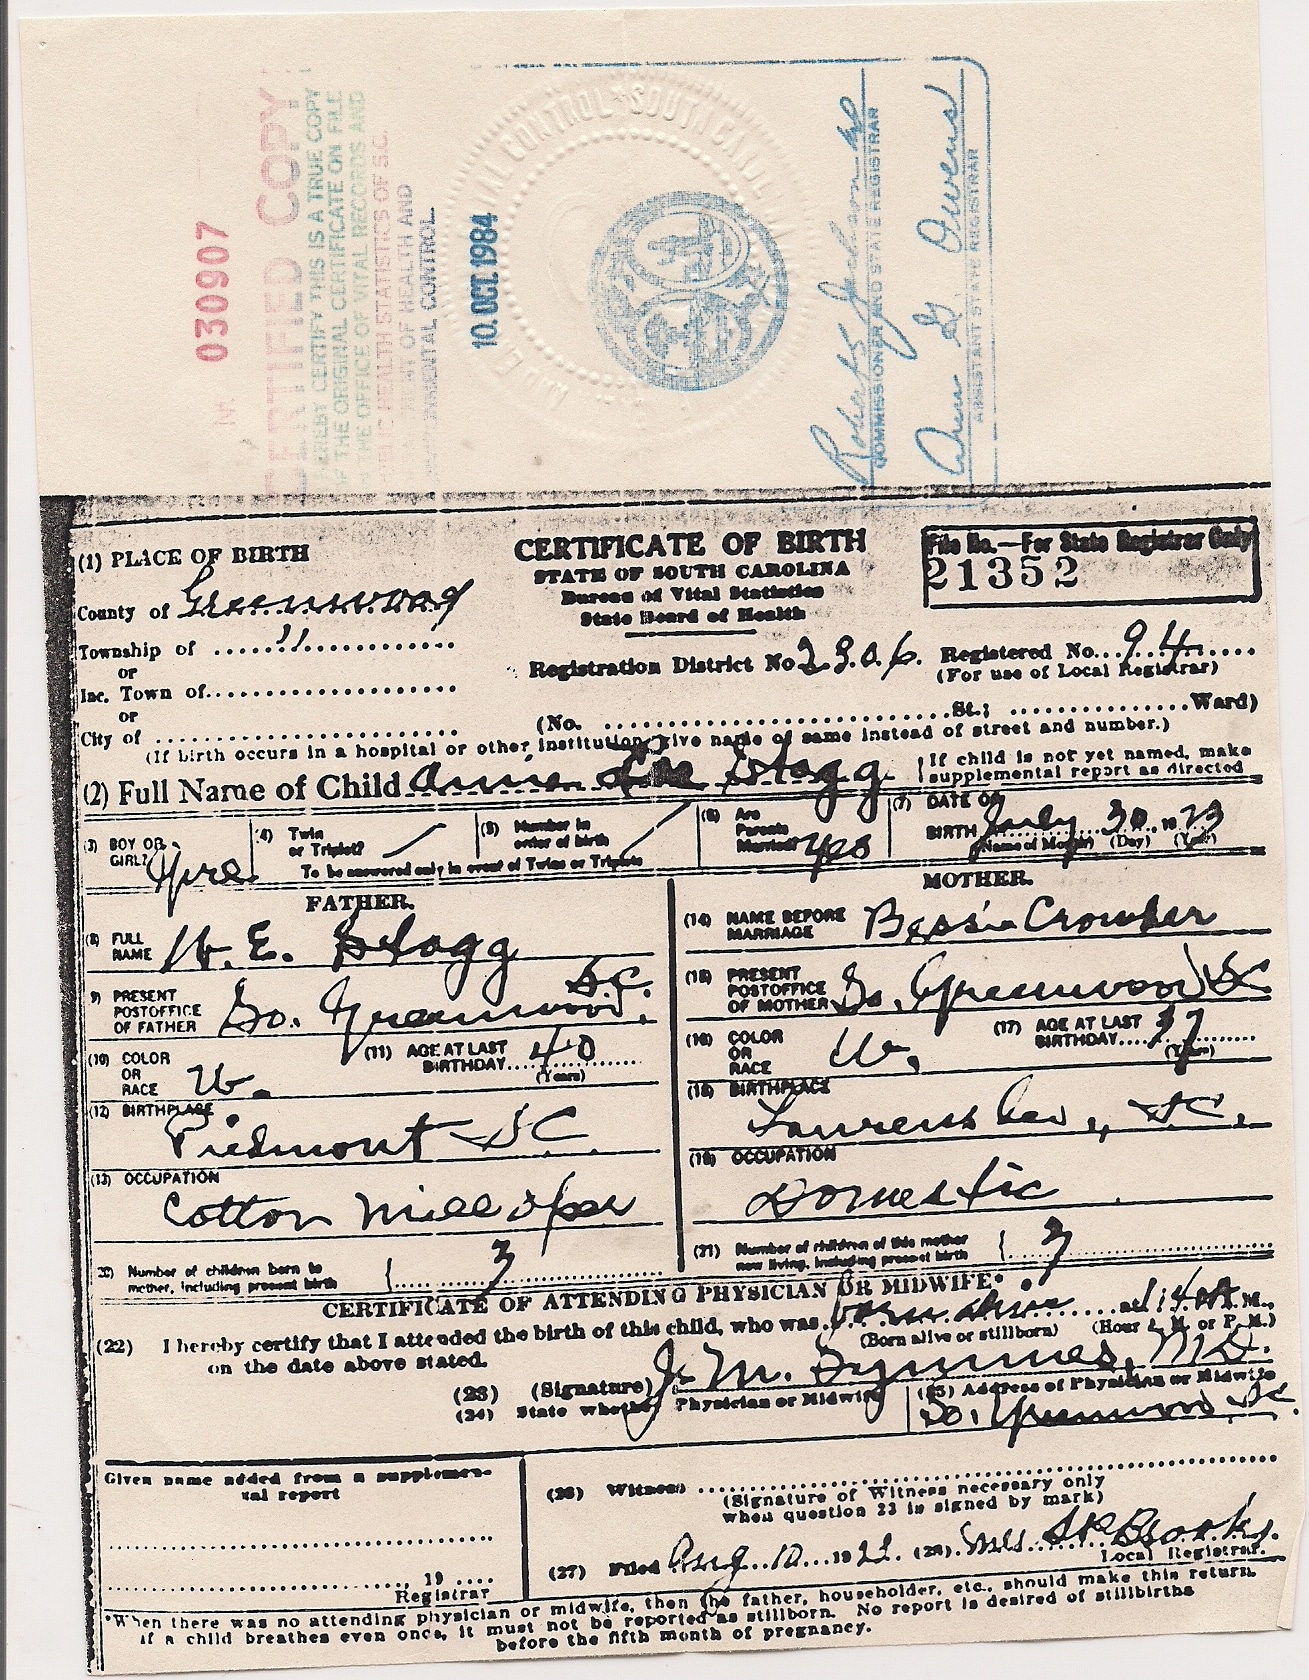 No. 030907
CERTIFIED COPY
I HEREBY CERTIFY THIS IS A TRUE COPY
OF THE ORIGINAL CERTIFICATE ON FILE
IN THE OFFICE OF VITAL RECORDS AND
PUBLIC HEALTH STATISTICS OF S.C.
OF HEALTH AND
CONTROL.
10. OCT. 1984
CONTROL SOUTH CAROLINA
Robert S Jackson MD
COMMISSIONER AND STATE REGISTRAR
Ann G. Owens
ASSISTANT STATE REGISTRAR
(1) PLACE OF BIRTH
CERTIFICATE OF BIRTH
STATE OF SOUTH CAROLINA
Bureau of Vital Statistics
State Board of Health
File No.—For State Registrar Only
21352
County of Greenwood
Township of "
or
Inc. Town of
or
City of
Registration District No 2306. Registered No. 94
(For use of Local Registrar)
(No. St.; Ward)
(If birth occurs in a hospital or other institution, give name of same instead of street and number.)
(2) Full Name of Child Annie Lee Stagg
If child is not yet named, make
supplemental report as directed
(3) BOY OR
GIRL?
(4) Twin
or Triplet?
(5) Number in
order of birth
To be answered only in event of Twins or Triplets
(6) Are
Parents
Married? yes
(7) DATE OF
BIRTH July 30 1923
(Name of Month) (Day) (Year)
FATHER.
MOTHER.
(8) FULL
NAME W. E. Stagg
(14) NAME BEFORE
MARRIAGE Bessie Crowder
(9) PRESENT
POSTOFFICE
OF FATHER So. Greenwood. SC.
(15) PRESENT
POSTOFFICE
OF MOTHER So. Greenwood SC
(10) COLOR
OR
RACE W.
(11) AGE AT LAST
BIRTHDAY 40
(Years)
(16) COLOR
OR
RACE W.
(17) AGE AT LAST
BIRTHDAY 37
(Years)
(12) BIRTHPLACE
Piedmont SC
(18) BIRTHPLACE
Laurens Co., SC.
(13) OCCUPATION
Cotton Mill Oper
(19) OCCUPATION
Domestic
(20) Number of children born to
mother, including present birth
(21) Number of children of this mother
now living, including present birth
CERTIFICATE OF ATTENDING PHYSICIAN OR MIDWIFE*
(22) I hereby certify that I attended the birth of this child, who was born alive at M.,
(Born alive or stillborn) (Hour A. M. or P. M.)
on the date above stated.
(23) (Signature) J. M. Symmes, MD.
(24) State whether Physician or Midwife
(25) Address of Physician or Midwife
So. Greenwood SC
Given name added from a supplemen-
tal report
19
Registrar
(26) Witness
(Signature of Witness necessary only
when question 23 is signed by mark)
(27) Filed Aug 10 19 (28) Mrs Brooks.
Local Registrar.
*When there was no attending physician or midwife, then the father, householder, etc., should make this return.
If a child breathes even once, it must not be reported as stillborn. No report is desired of stillbirths
before the fifth month of pregnancy.